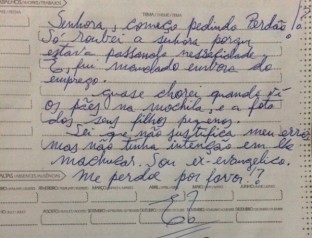 Senhora, começo pedindo Perdão!
Só roubei a senhora porque
estava passando nessecidade
E fui mandado embora do
emprego.
quase chorei quando vi
os pães na mochila, e a foto
dos seus filhos pequenos.
Sei que não justifica meu erro
mas não tinha intenção em te
machucar. Sou ex-evangelico.
Me perdoe por favor!?